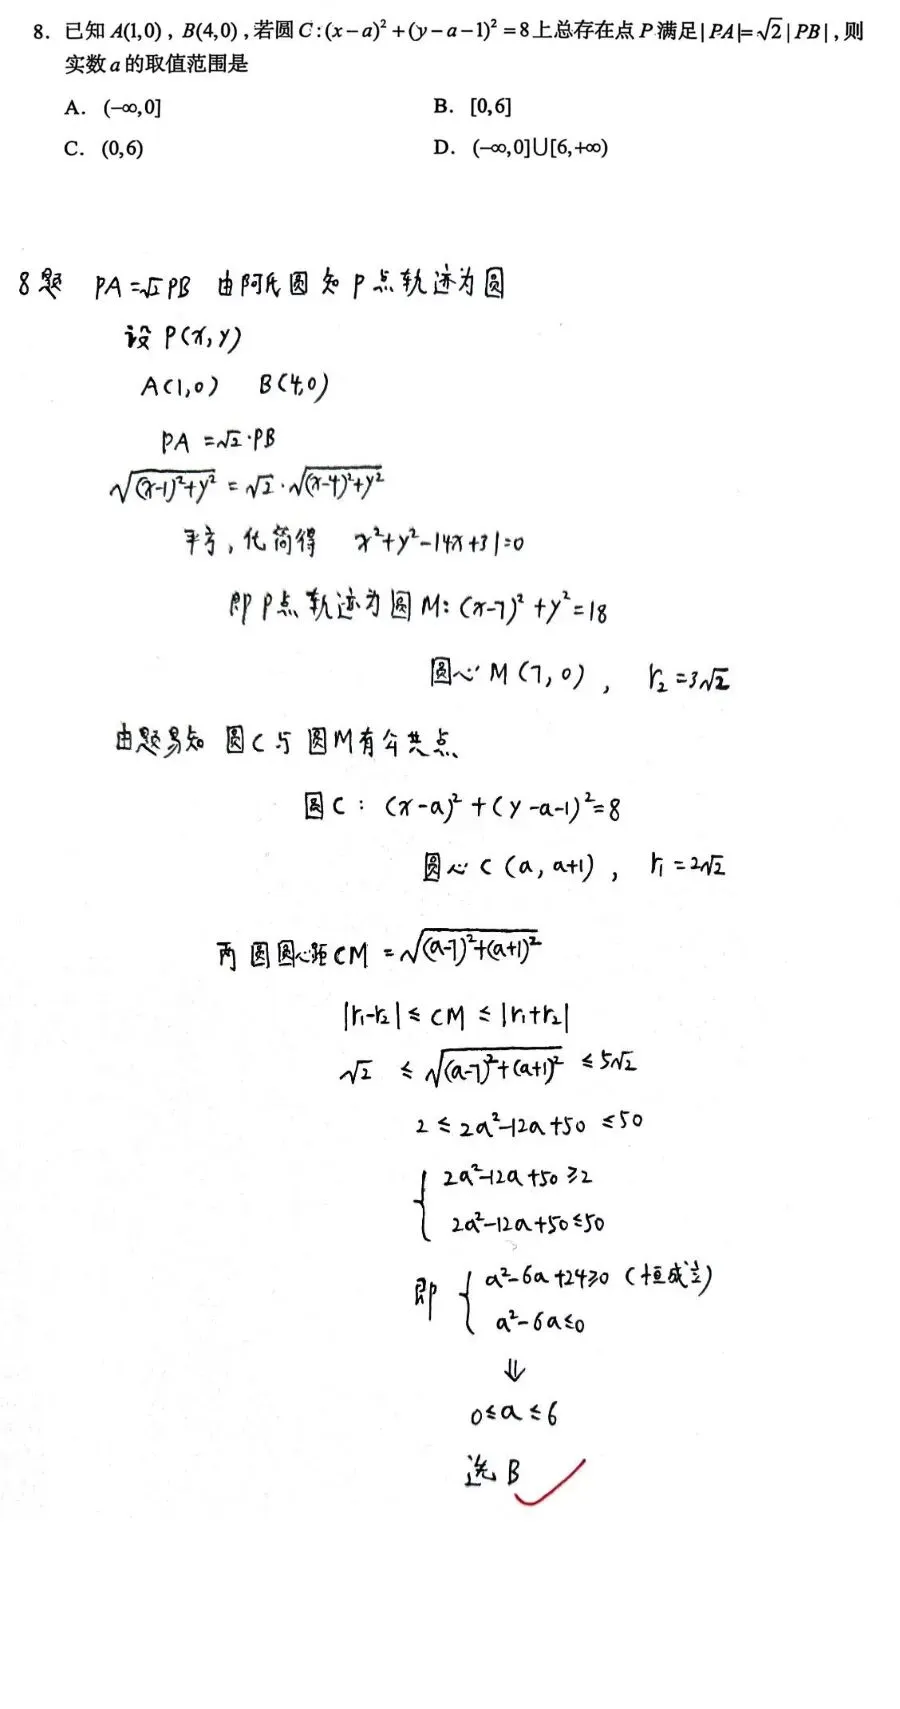 8. 已知 A(1,0)，B(4,0)，若圆 C:(x−a)²+(y−a−1)²=8上总存在点 P 满足|PA|=√2|PB|，则
实数 a 的取值范围是
A. (−∞,0] B. [0,6]
C. (0,6) D. (−∞,0]∪[6,+∞)
8题 PA=√2PB 由阿氏圆知P点轨迹为圆
设P(x,y)
A(1,0) B(4,0)
PA=√2·PB
√((x-1)²+y²) = √2·√((x-4)²+y²)
平方，化简得 x²+y²-14x+31=0
即P点轨迹为圆M: (x-7)²+y²=18
圆心M(7,0)， r₂=3√2
由题易知 圆C与圆M有公共点
圆C: (x-a)²+(y-a-1)²=8
圆心C(a, a+1)， r₁=2√2
两圆圆心距CM=√((a-7)²+(a+1)²)
|r₁-r₂| ≤ CM ≤ |r₁+r₂|
√2 ≤ √((a-7)²+(a+1)²) ≤ 5√2
2 ≤ 2a²-12a+50 ≤ 50
{ 2a²-12a+50≥2
2a²-12a+50≤50
即 { a²-6a+24≥0 (恒成立)
a²-6a≤0
⇓
0≤a≤6
选B